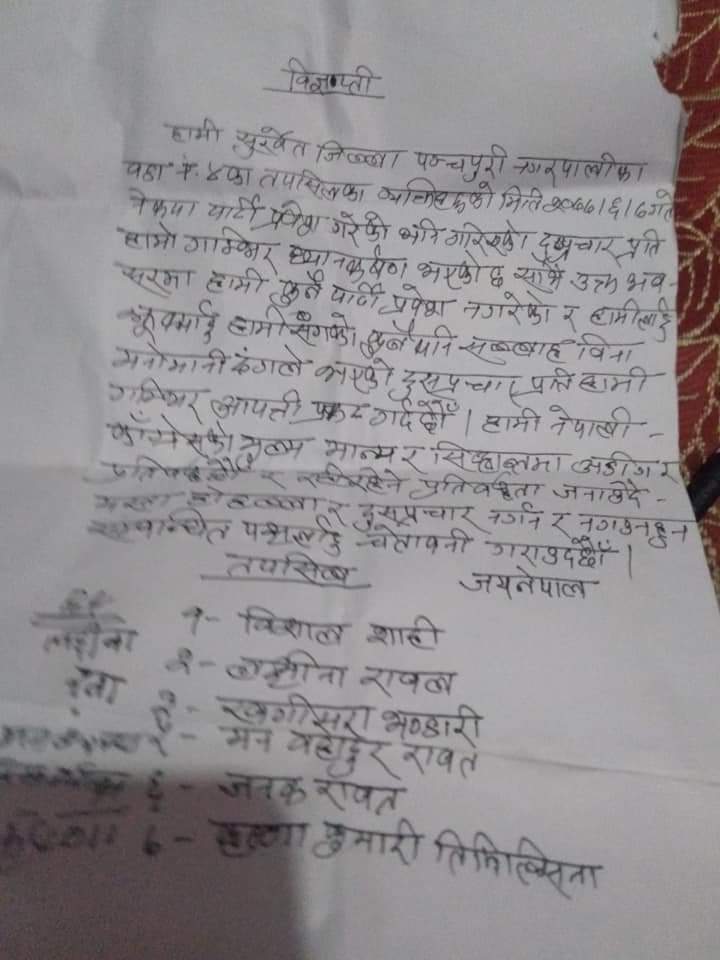 विज्ञप्ती
हामी सुर्खेत जिल्ला पञ्चपुरी नगरपालीका
वडा नं. ४ का तपसिलका व्यक्तिहरुको मिति २०७७।६।७ गते
नेकपा पार्टी प्रवेश गरेको भनि गरिएको दुष्प्रचार प्रति
हाम्रो गाम्भिर ध्यानकर्षण भएको छ साथै उक्त अव-
सरमा हामी कुनै पार्टी प्रवेश नगरेको र हामीलाई
हामी सँगको कुनै पनि सल्लाह विना
मनोमानी ढंगले भएको दुसप्रचार प्रति हामी
गम्भिर आपत्ती प्रकट गर्दछौँ । हामी नेपाली -
काँग्रेसको मुल्य मान्य र सिद्धान्तमा अडीग र
प्रतिवद्धछौँ र रहीरहने प्रतिवद्धता जनाउदै -
यस्ता हो हल्ला र दुसप्रचार नगर्न र नगराउनहुन
सम्वन्धित पक्षलाई चेतावनी गराउदछौँ ।
तपसिल जयनेपाल
१- विशाल शाही
२- लक्ष्मीना रावल
३- खगीसरा भण्डारी
- मन वहादुर रावत
- जनक रावत
६- कृष्णा कुमारी तिमिल्सिना